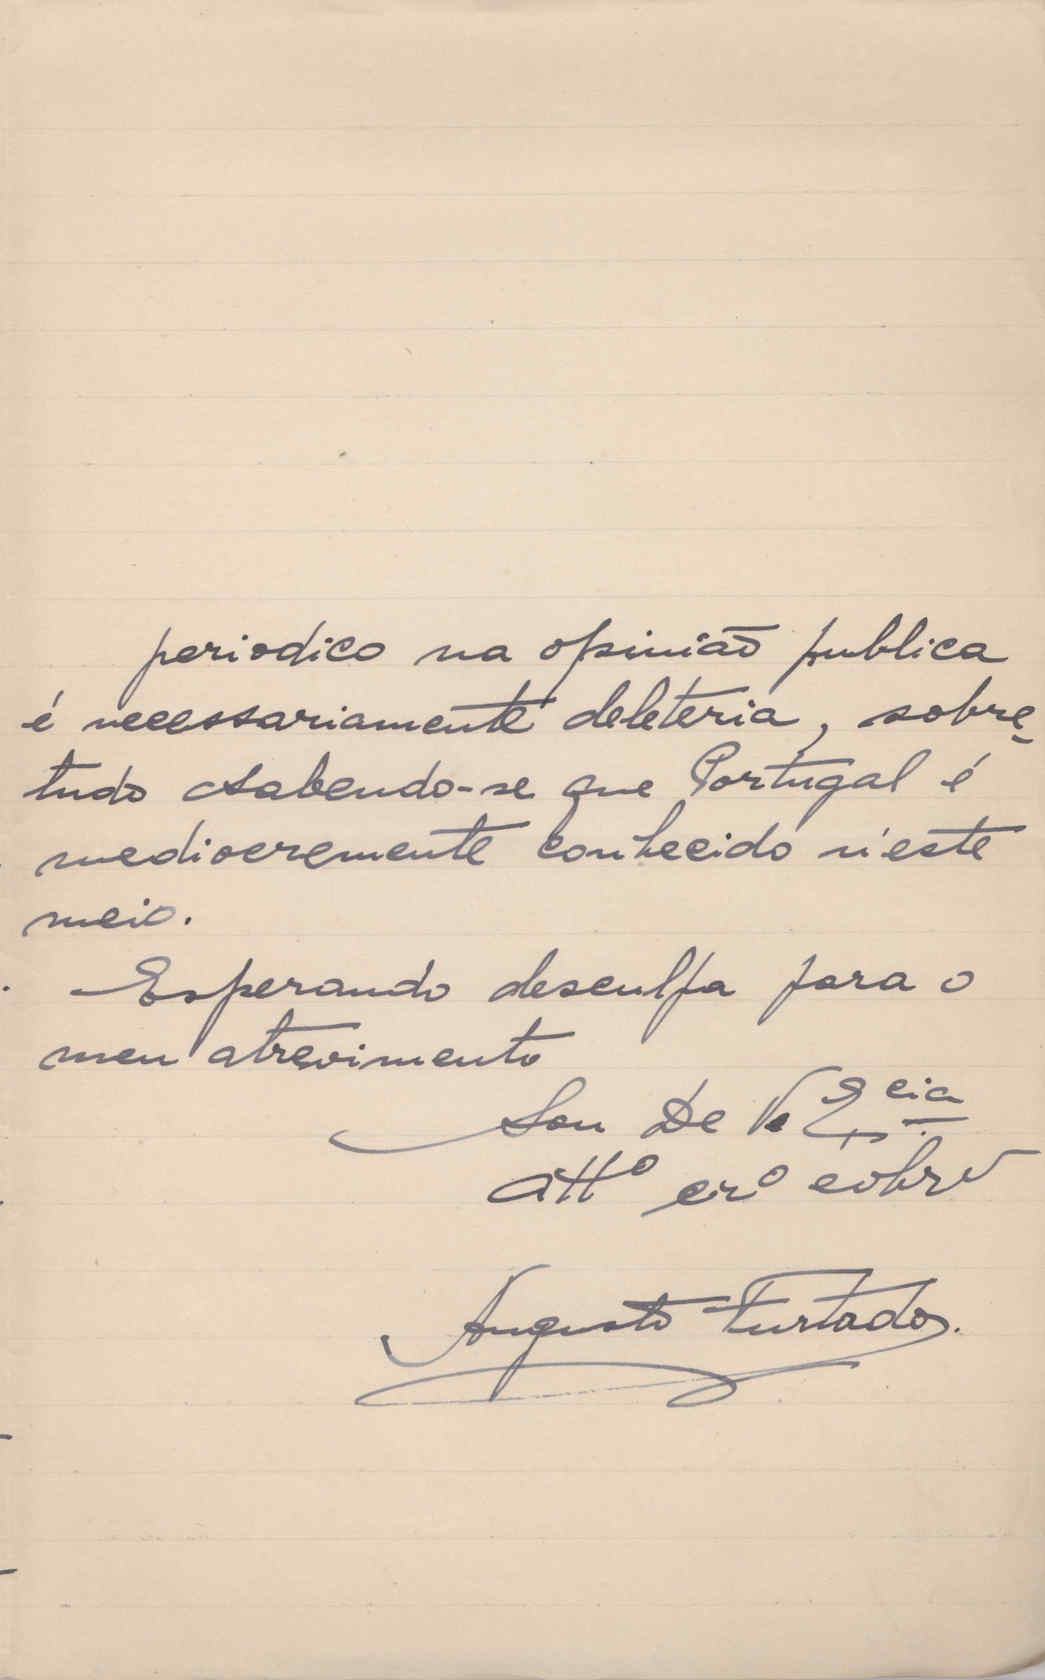 periodico na opinião publica
é necessariamente deleteria, sobre-
tudo sabendo-se que Portugal é
mediocremente conhecido n'este
meio.
Esperando desculpa para o
meu atrevimento
Sou De V. Ex.cia
Atto cro obro
Augusto Furtado.